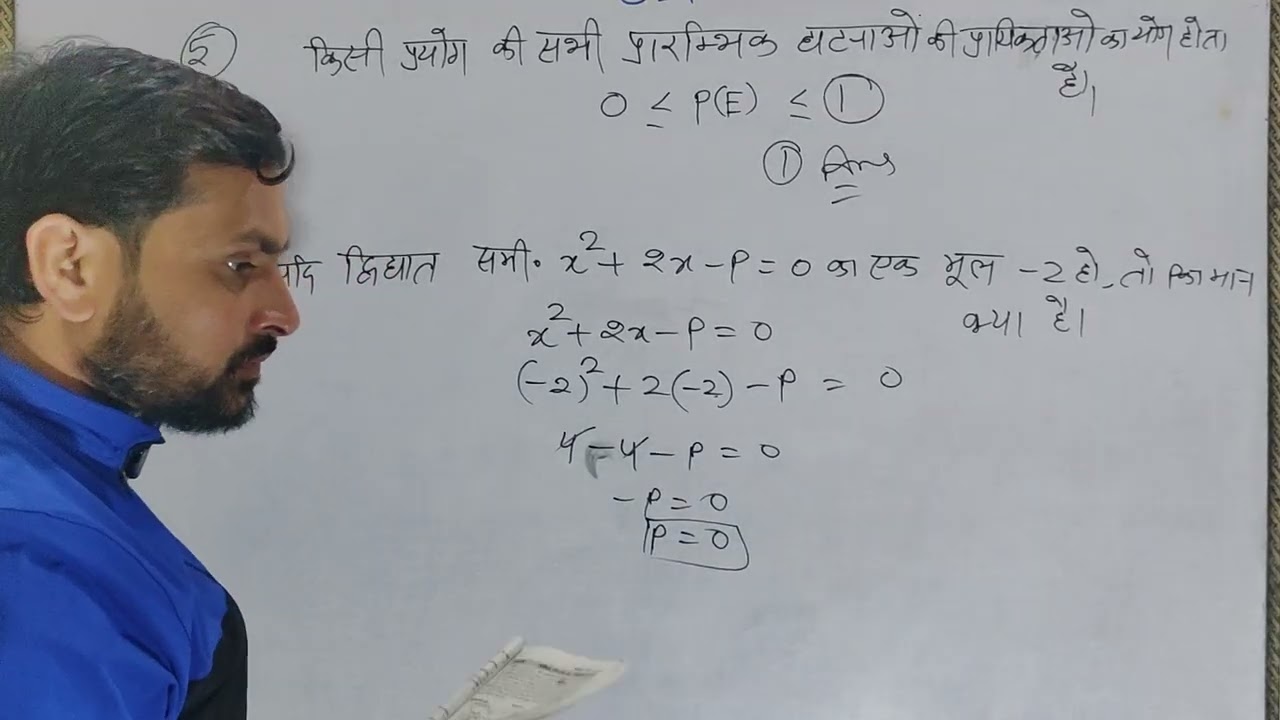 (5) किसी प्रयोग की सभी प्रारम्भिक घटनाओं की प्रायिकताओ का योग होता
है।
0 ≤ P(E) ≤ 1
(1) Ans
द्विघात समी॰ x² + 2x - P = 0 का एक मूल -2 हो, तो P का मान
क्या है।
x² + 2x - P = 0
(-2)² + 2(-2) - P = 0
4 - 4 - P = 0
- P = 0
P = 0